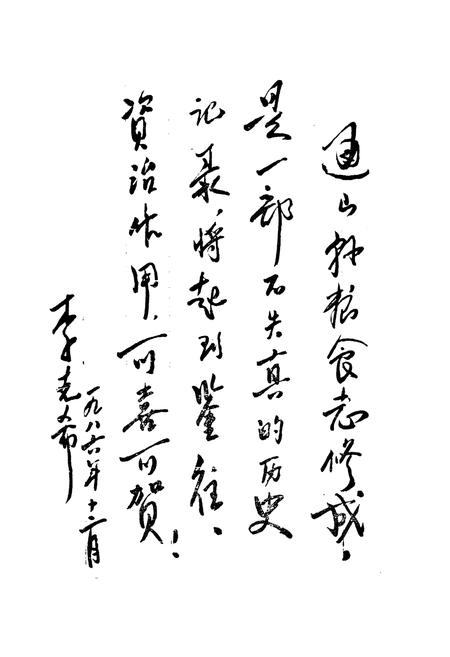 通山县粮食志修成，
是一部不失真的历史
记录，将起到鉴往、
資治作用，可喜可贺！
李克
一九八六年十二月